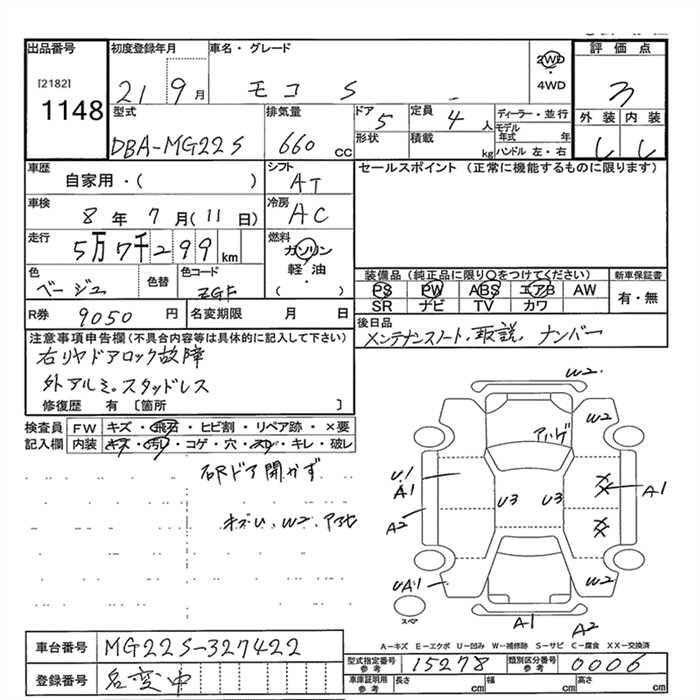 出品番号
[2182]
1148
初度登録年月
21 9月
車名・グレード
モコ S
2WD
・
4WD
評価点
3
外装 内装
型式
DBA-MG22S
排気量
660 cc
ドア 5
形状
定員 4 人
積載 kg
ディーラー・並行
モデル年式 年
ハンドル 左・右
車歴
自家用・( )
シフト
AT
セールスポイント (正常に機能するものに限ります)
車検
8年 7月(11日)
冷房
AC
走行
5万7千299km
燃料
ガソリン
軽油・
( )
色
ベージュ
色替
色コード
ZGF
装備品(純正品に限り○をつけてください)
PS PW ABS エアB AW
SR ナビ TV カワ
新車保証書
有・無
R券 9050円
名変期限 月 日
後日品
メンテナンスノート、取説、ナンバー
注意事項申告欄(不具合内容等は具体的に記入して下さい)
右リヤドアロック故障
外アルミ。スタッドレス
修復歴 有 〔箇所 〕
検査員記入欄
FW キズ・飛石・ヒビ割・リペア跡・×要
内装 キズ・汚レ・コゲ・穴・スレ・キレ・破レ
右Rドア開かず
キズい、W2、アセ
W2.
アハゲ
W2
U.1
A1
A2
U3
U3
A1
UA1
W2
A1
A2
スペア
A-キズ E-エクボ U-凹み W-補修跡 S-サビ C-腐食 XX-交換済
車台番号
MG22S-327422
登録番号
名変中
型式指定番号
参考
15278
類別区分番号
参考
0006
車庫証明用
参考
長さ cm
幅 cm
高さ cm